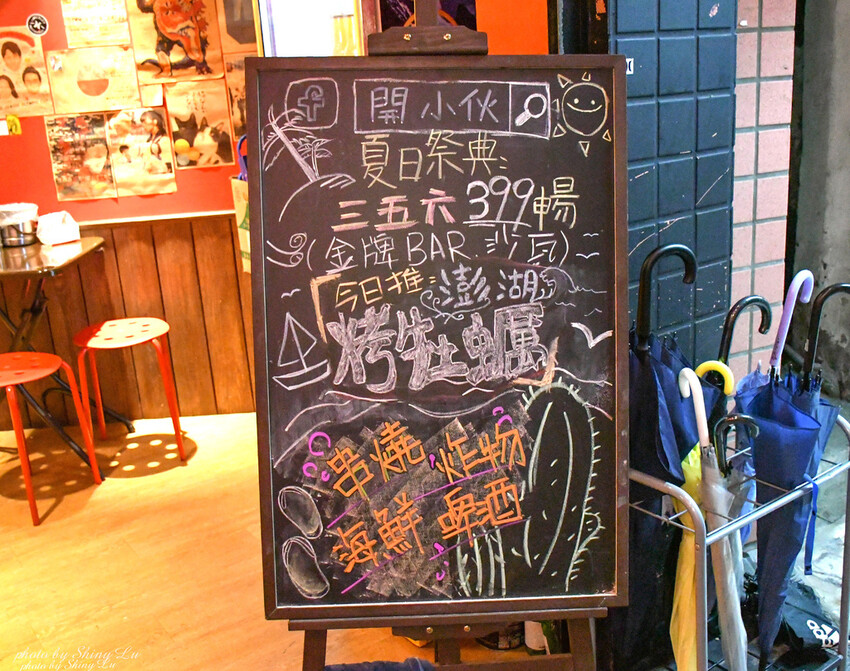 f 開小伙
夏日祭典
三五六 399 暢
(金牌 BAR 沙瓦)
今日推: 澎湖
烤牡蠣
串燒 炸物
海鮮 啤酒
photo by Shing Lu
photo by Shing Lu